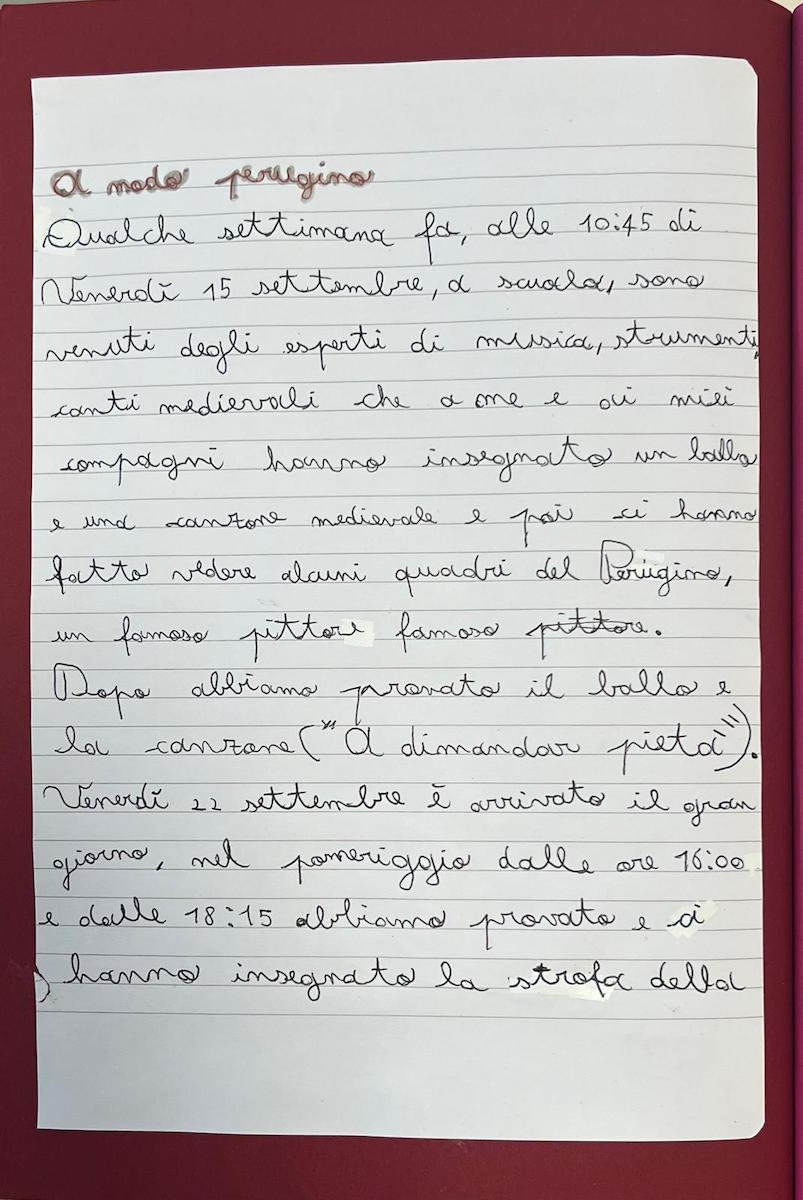 A modo perugino
Qualche settimana fa, alle 10:45 di
Venerdì 15 settembre, a scuola, sono
venuti degli esperti di musica, strumenti,
canti medievali che a me e ai miei
compagni hanno insegnato un ballo
e una canzone medievale e poi ci hanno
fatto vedere alcuni quadri del Perugino,
un famoso pittore famoso pittore.
Dopo abbiamo provato il ballo e
la canzone ("A dimandar pietà").
Venerdì 22 settembre è arrivato il gran
giorno, nel pomeriggio dalle ore 16:00
e dalle 18:15 abbiamo provato e ci
hanno insegnato la strofa della